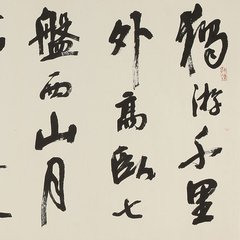 獨遊千里
外高臥七
盤西山月